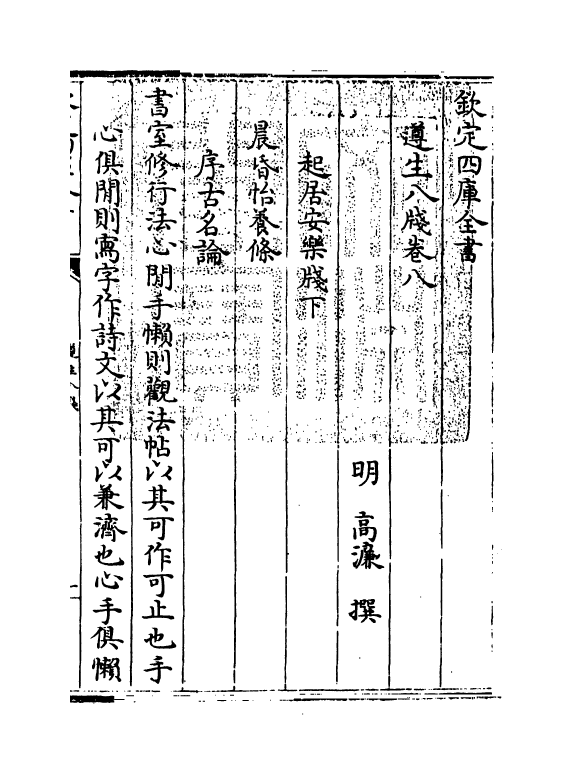 欽定四庫全書
遵生八牋卷八
明 高濂 撰
起居安樂牋下
晨昏怡養條
序古名論
書室修行法心閒手懶則觀法帖以其可作可止也手
心俱閒則寫字作詩文以其可以兼濟也心手俱懶